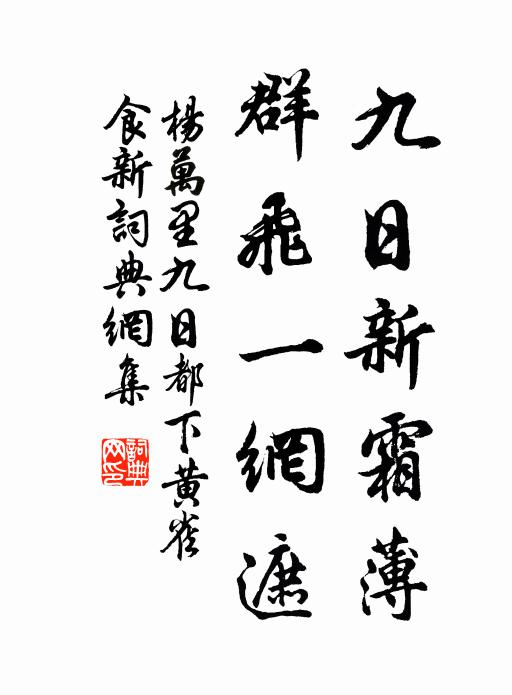 九日新霜薄
群飛一網遮
楊萬里九日都下黃雀
食新詞典網集
詞典
網印